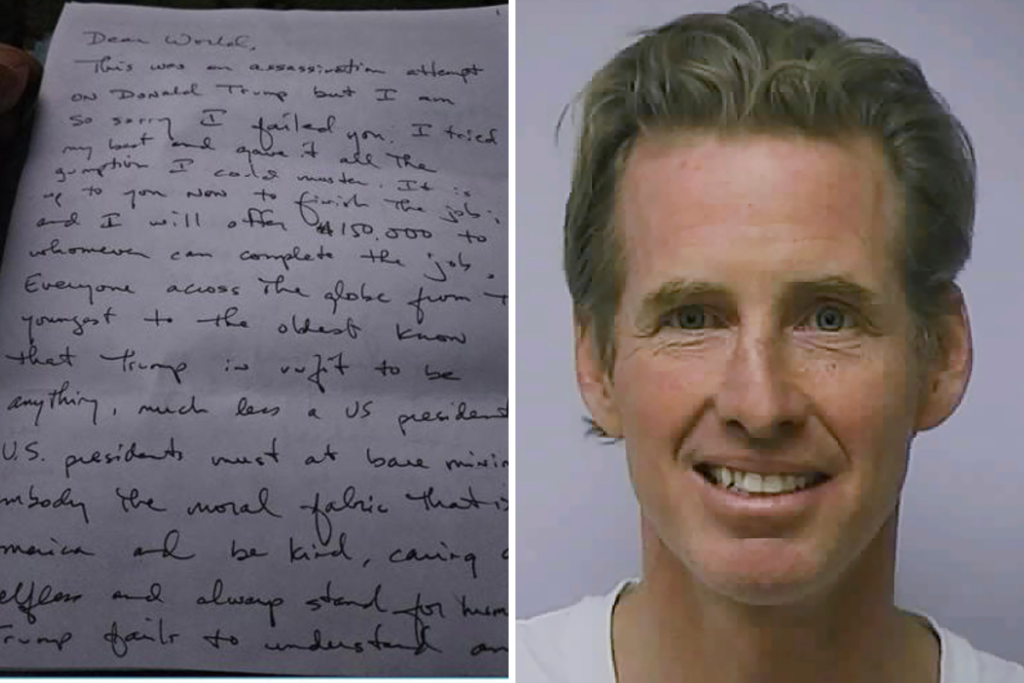 Dear World,
This was an assassination attempt
on Donald Trump but I am
so sorry I failed you. I tried
my best and gave it all the
gumption I could muster. It is
up to you now to finish the job;
and I will offer $150,000 to
whomever can complete the job.
Everyone across the globe from t
youngest to the oldest know
that Trump is unfit to be
anything, much less a US president
U.S. presidents must at bare minim
mbody the moral fabric that is
merica and be kind, caring
elfless and always stand for hum
Trump fails to understand an